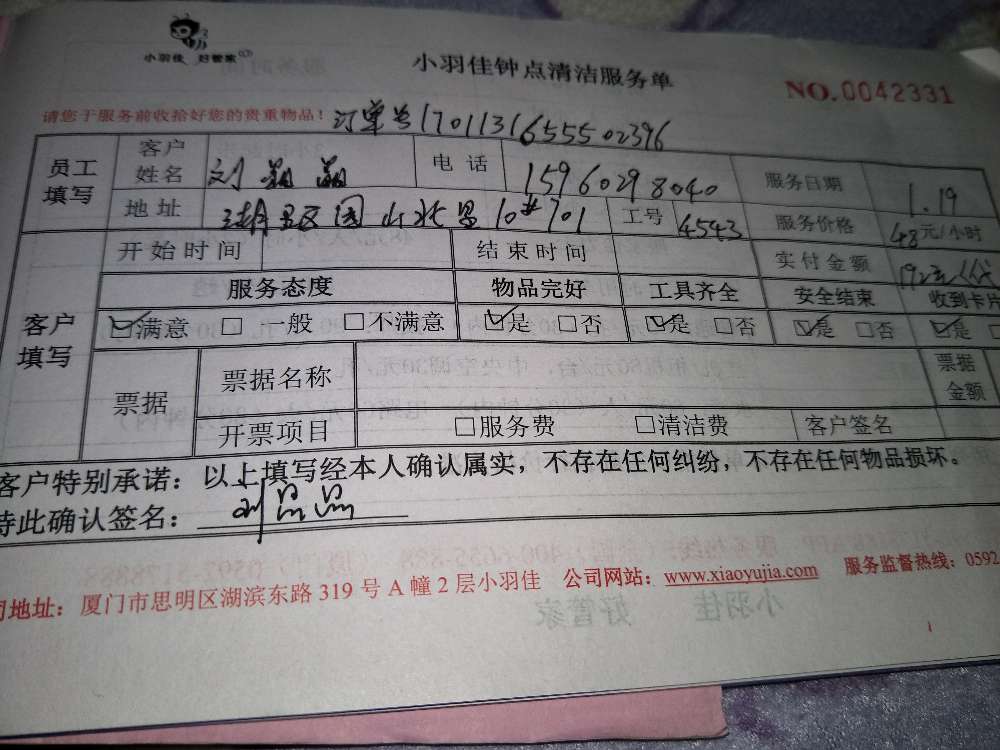 小羽佳 好管家
小羽佳钟点清洁服务单
NO.0042331
请您于服务前收拾好您的贵重物品! 订单号17011316555502396
员工填写 客户姓名 刘 电话 15960298040 服务日期 1.19
地址 湖里区园山北里10#701 工号 4543 服务价格 48元/小时
开始时间 结束时间 实付金额 192元
客户填写 服务态度 物品完好 工具齐全 安全结束 收到卡片
☑满意 □一般 □不满意 ☑是 □否 ☑是 □否 ☑是 □否 ☑是 □
票据 票据名称 票据金额
开票项目 □服务费 □清洁费 客户签名
客户特别承诺：以上填写经本人确认属实，不存在任何纠纷，不存在任何物品损坏。
特此确认签名： 刘
司地址：厦门市思明区湖滨东路319号A幢2层小羽佳 公司网站：www.xiaoyujia.com 服务监督热线：0592